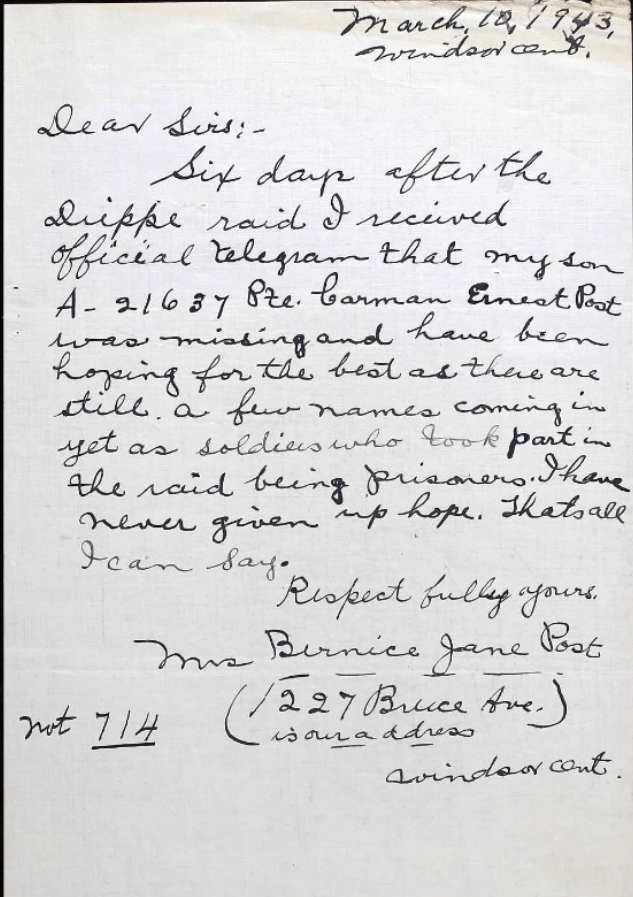 March, 10, 1943,
Windsor Ont.
Dear Sirs:-
Six days after the
Dieppe raid I received
official telegram that my son
A-21637 Pte. Carman Ernest Post
was missing and have been
hoping for the best as there are
still. a few names coming in
yet as soldiers who took part in
the raid being prisoners. I have
never given up hope. Thats all
I can say.
Respectfully yours.
Mrs Bernice Jane Post
(1227 Bruce Ave.)
is our address
not 714
Windsor Ont.